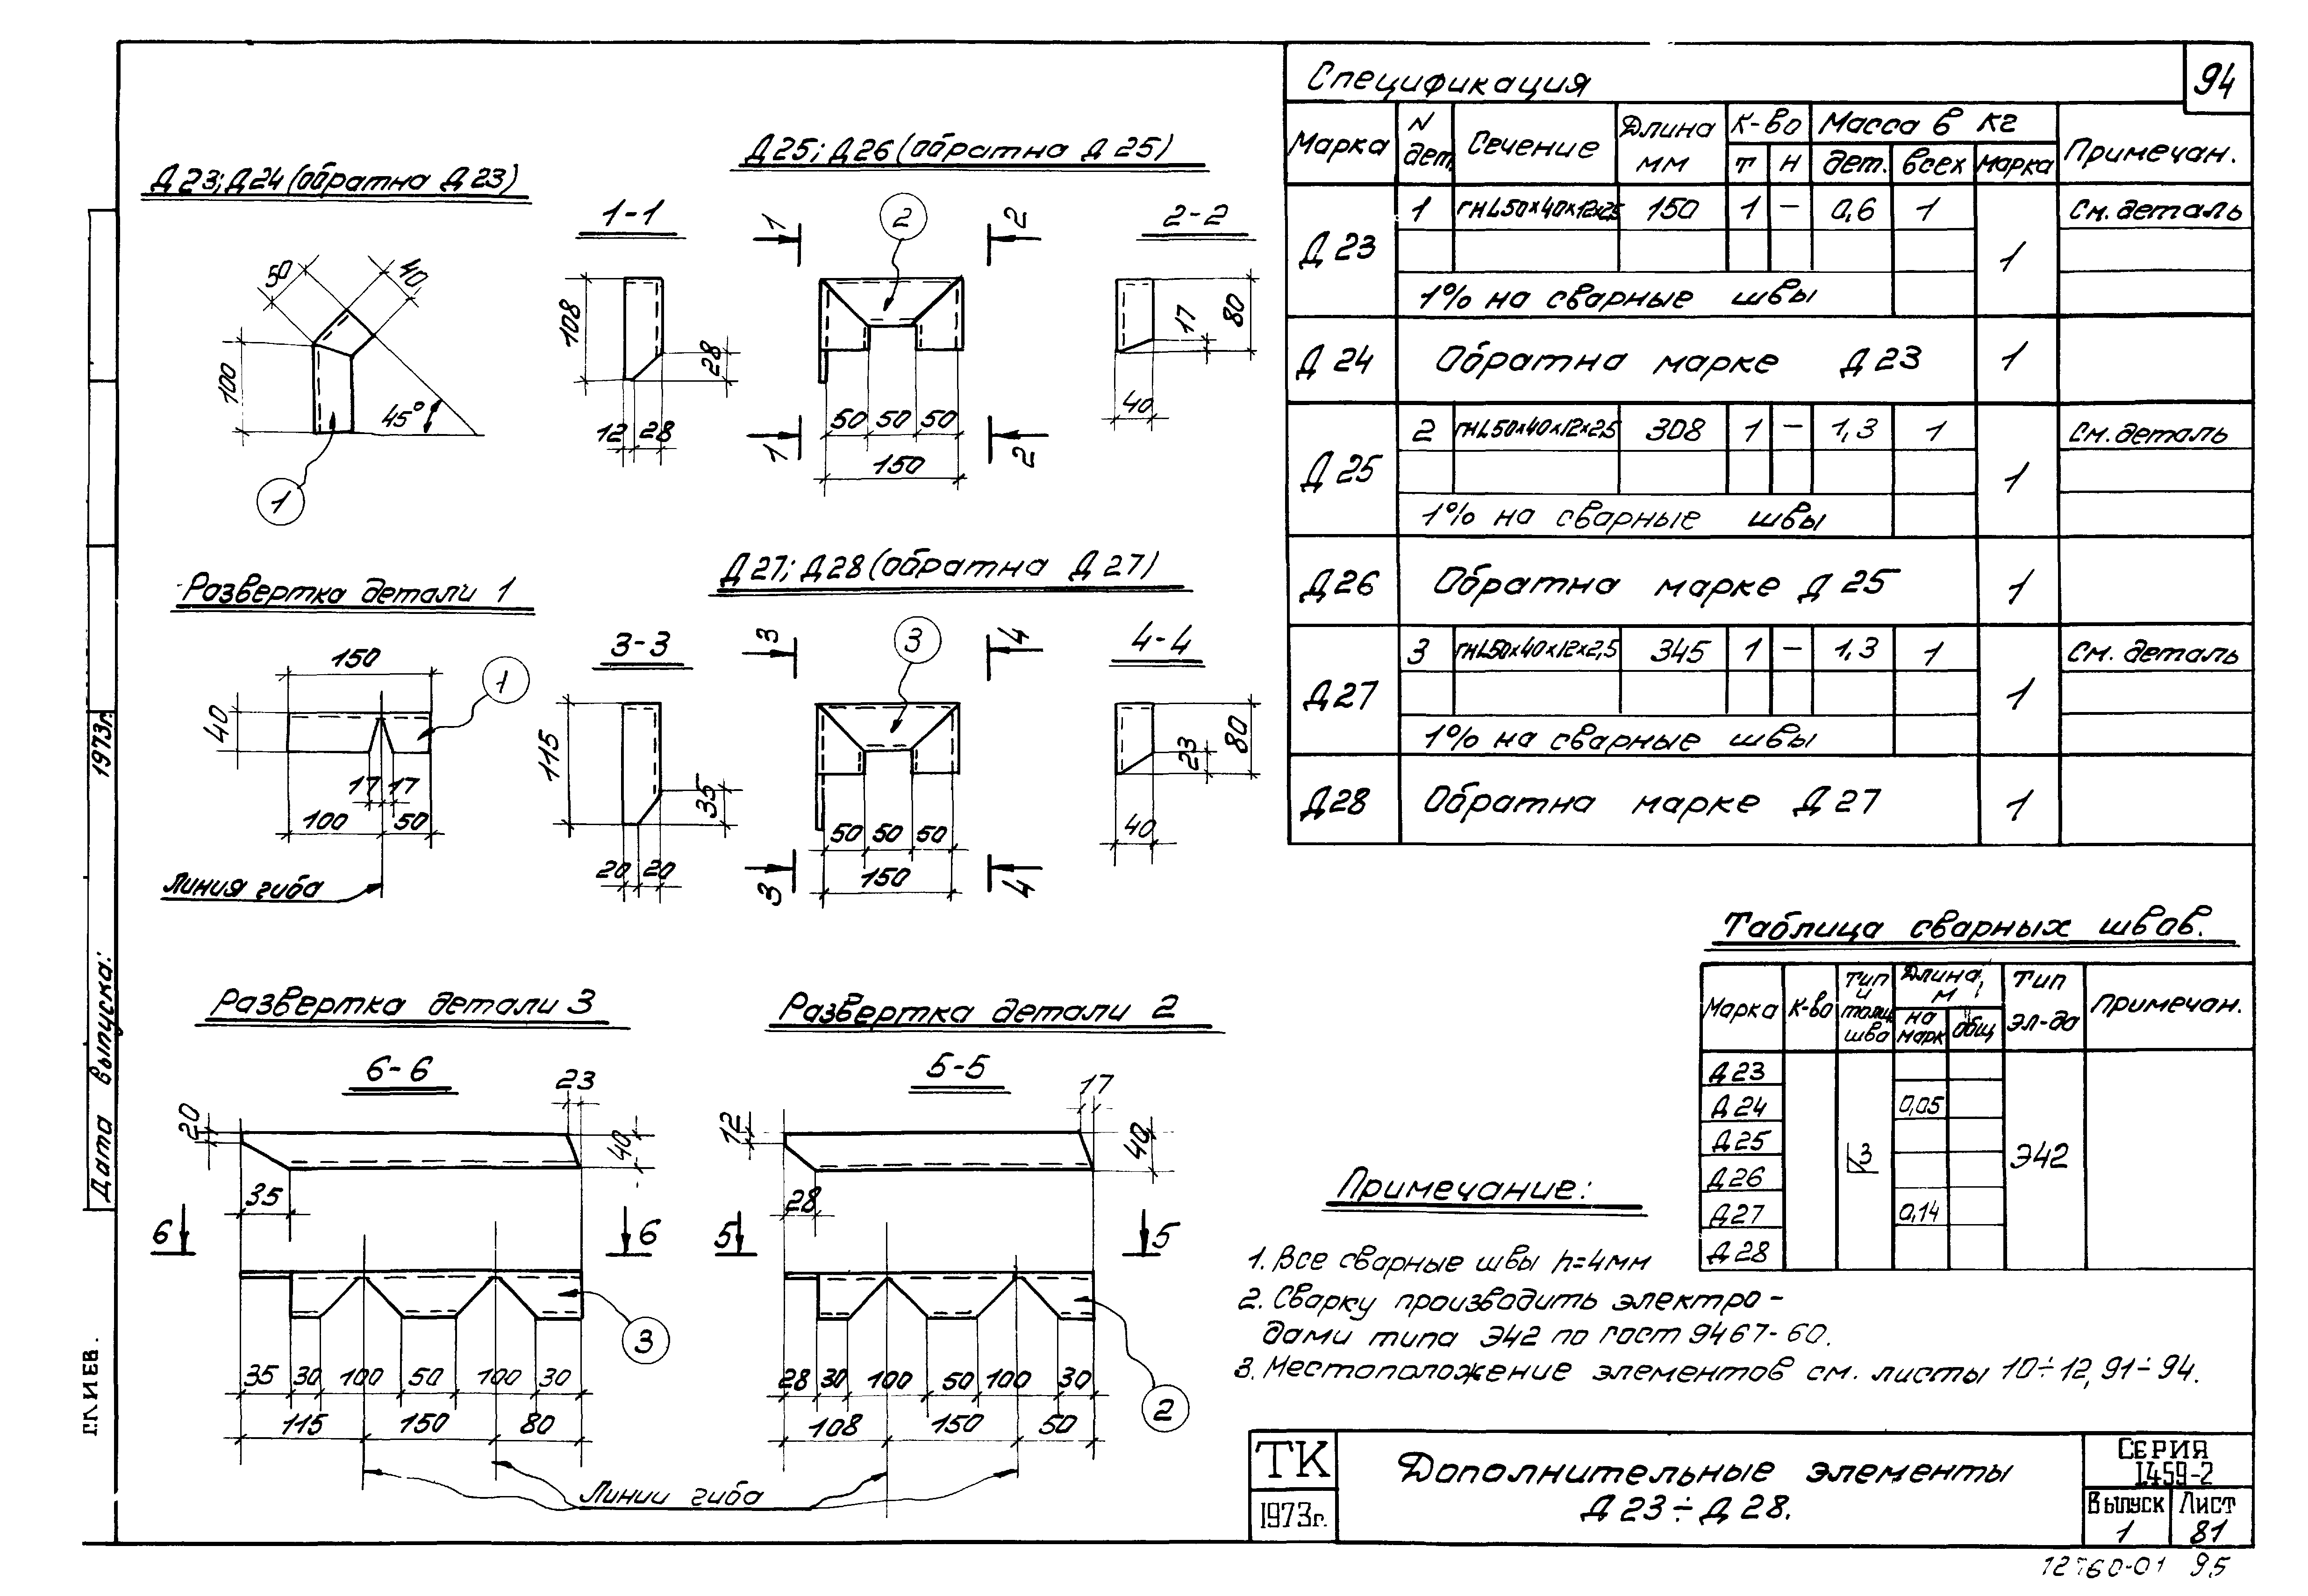 94
Спецификация
Марка
N дет.
Сечение
Длина мм
К-во
т
н
Масса в кг
дет.
всех
марка
Примечан.
Д23
1 ГНL50×40×12×2,5 150 1 – 0,6 1
1
См. деталь
1% на сварные швы
Д24 Обратна марке Д23 1
Д25
2 ГНL50×40×12×2,5 308 1 – 1,3 1
1
См. деталь
1% на сварные швы
Д26 Обратна марке Д25 1
Д27
3 ГНL50×40×12×2,5 345 1 – 1,3 1
1
См. деталь
1% на сварные швы
Д28 Обратна марке Д27 1
Д23; Д24 (обратна Д23)
50
40
100
45°
1
Д25; Д26 (обратна Д25)
1-1
108
28
12 28
1
2
2
50 50 50
150
1
2
2-2
17
80
40
Развертка детали 1
150
1
40
17 17
100 50
Линия гиба
Д27; Д28 (обратна Д27)
3-3
115
35
20 20
3
3
4
50 50 50
150
3
4
4-4
23
80
40
Развертка детали 3
6-6
23
20
40
35
6
6
3
35 30 100 50 100 30
115 150 80
Развертка детали 2
5-5
17
12
40
28
5
5
28 30 100 50 100 30
2
108 150 50
Линии гиба
Таблица сварных швов.
Марка
К-во
Тип и толщ шва
Длина, м
на марк
общ
Тип эл-да
Примечан.
Д23
Д24
0,05
Д25
3
Э42
Д26
Д27
0,14
Д28
Примечание:
1. Все сварные швы h=4мм
2. Сварку производить электро-
дами типа Э42 по гост 9467-60.
3. Местоположение элементов см. листы 10÷12, 91÷94.
ТК
1973г.
Дополнительные элементы
Д23÷Д28.
Серия
1.459-2
Выпуск
1
Лист
81
12760-01 95
1973г.
Дата выпуска:
г. Киев.